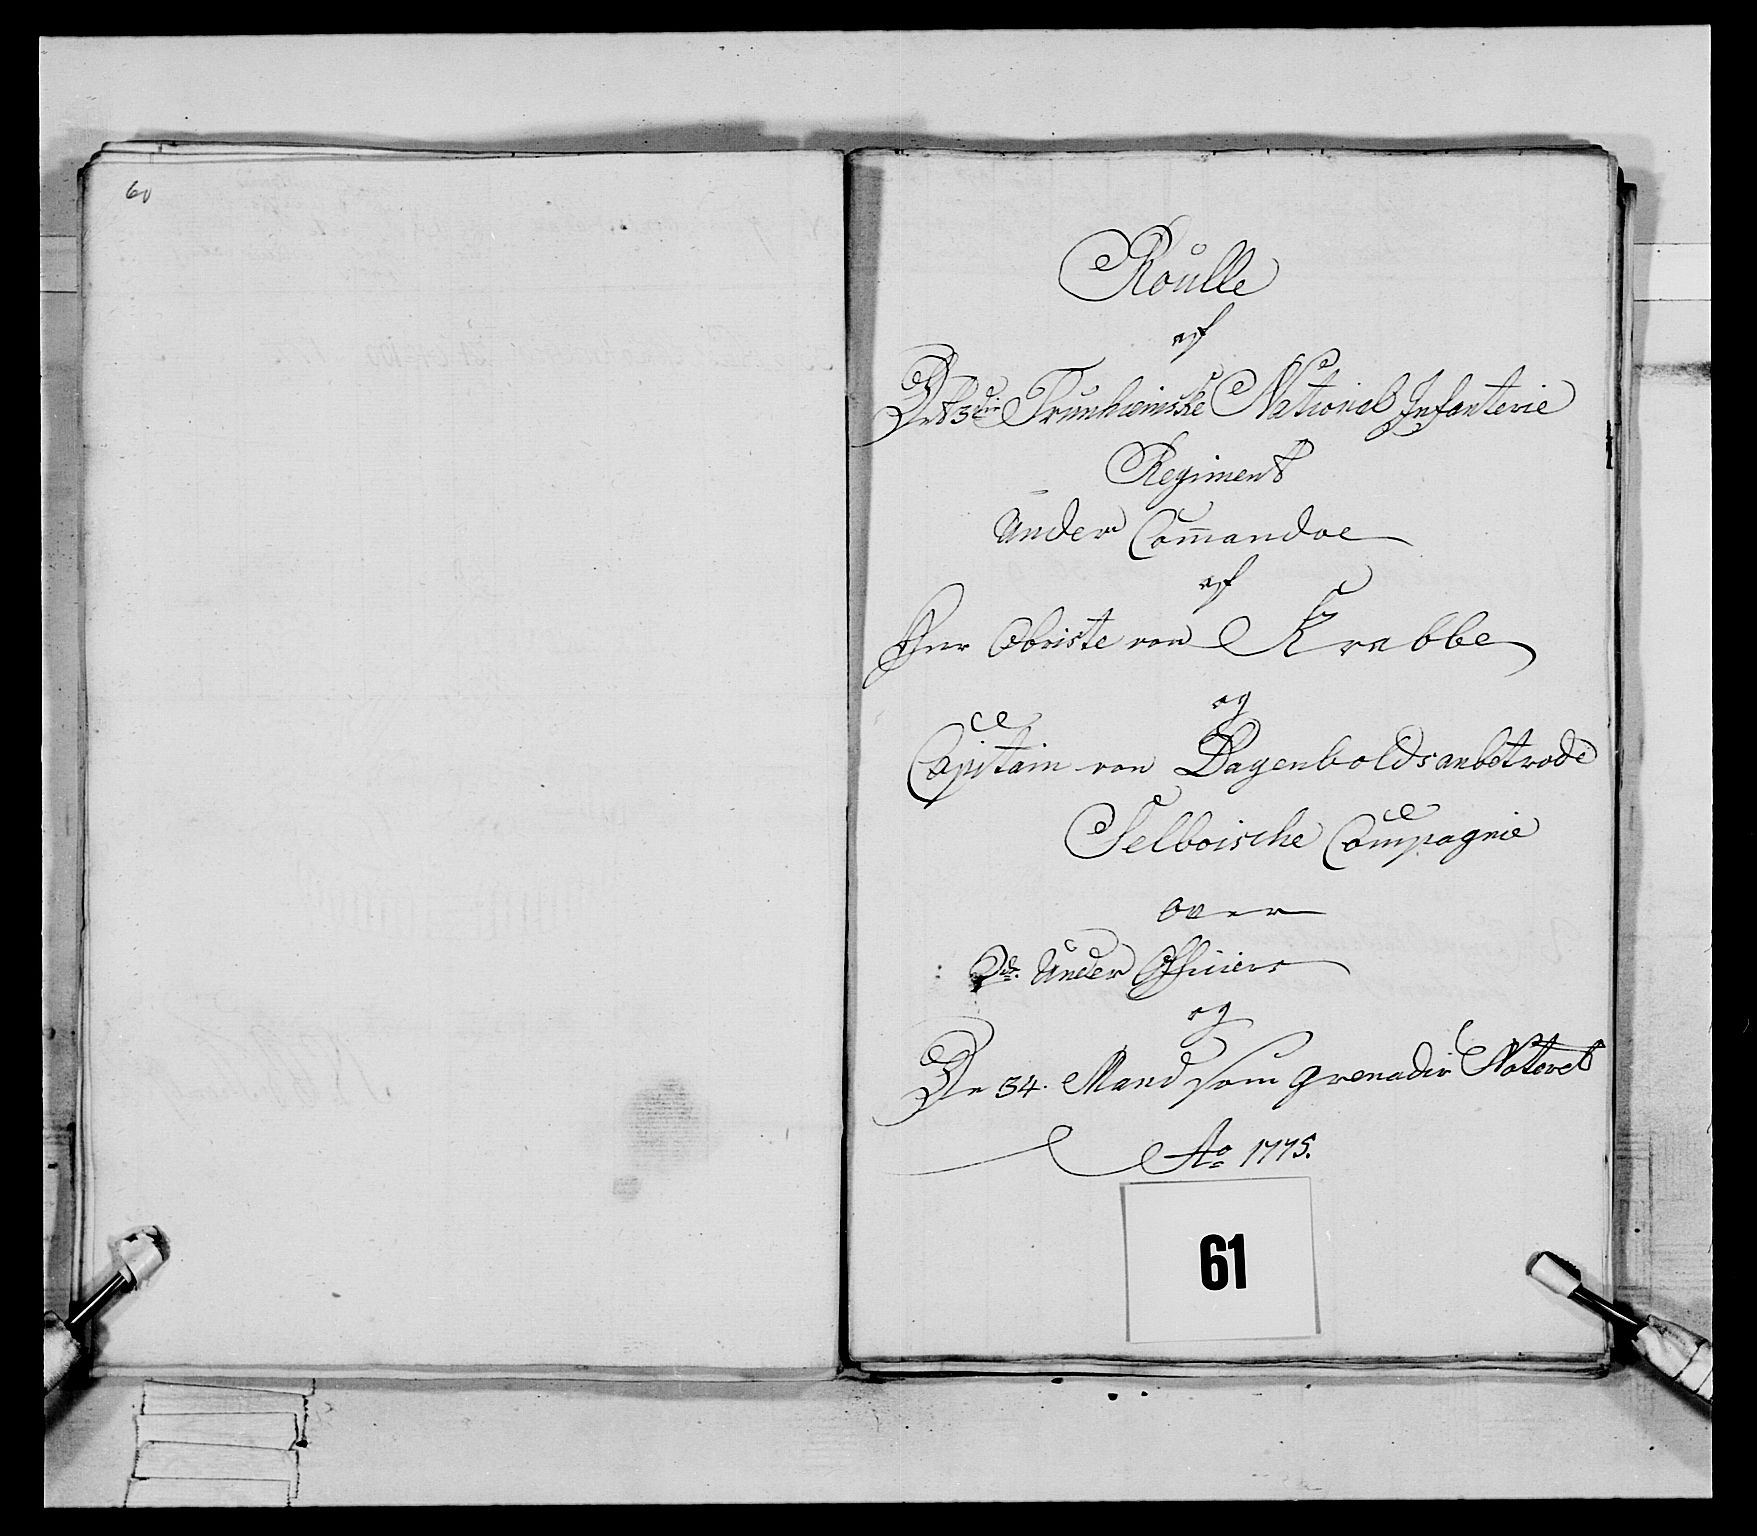 60
Roulle
af
Det 3die Trunhiemske National Infanterie
Regiment
Under Com̅andoe
af
Herr Obriste von Krabbe
og
Capitain von Dagenbolds anbetrode
Selboische Compagnie
over
Dr. Under Officiers
og
De 34. Mand som grenadir Noteret
Ao 1775.
61